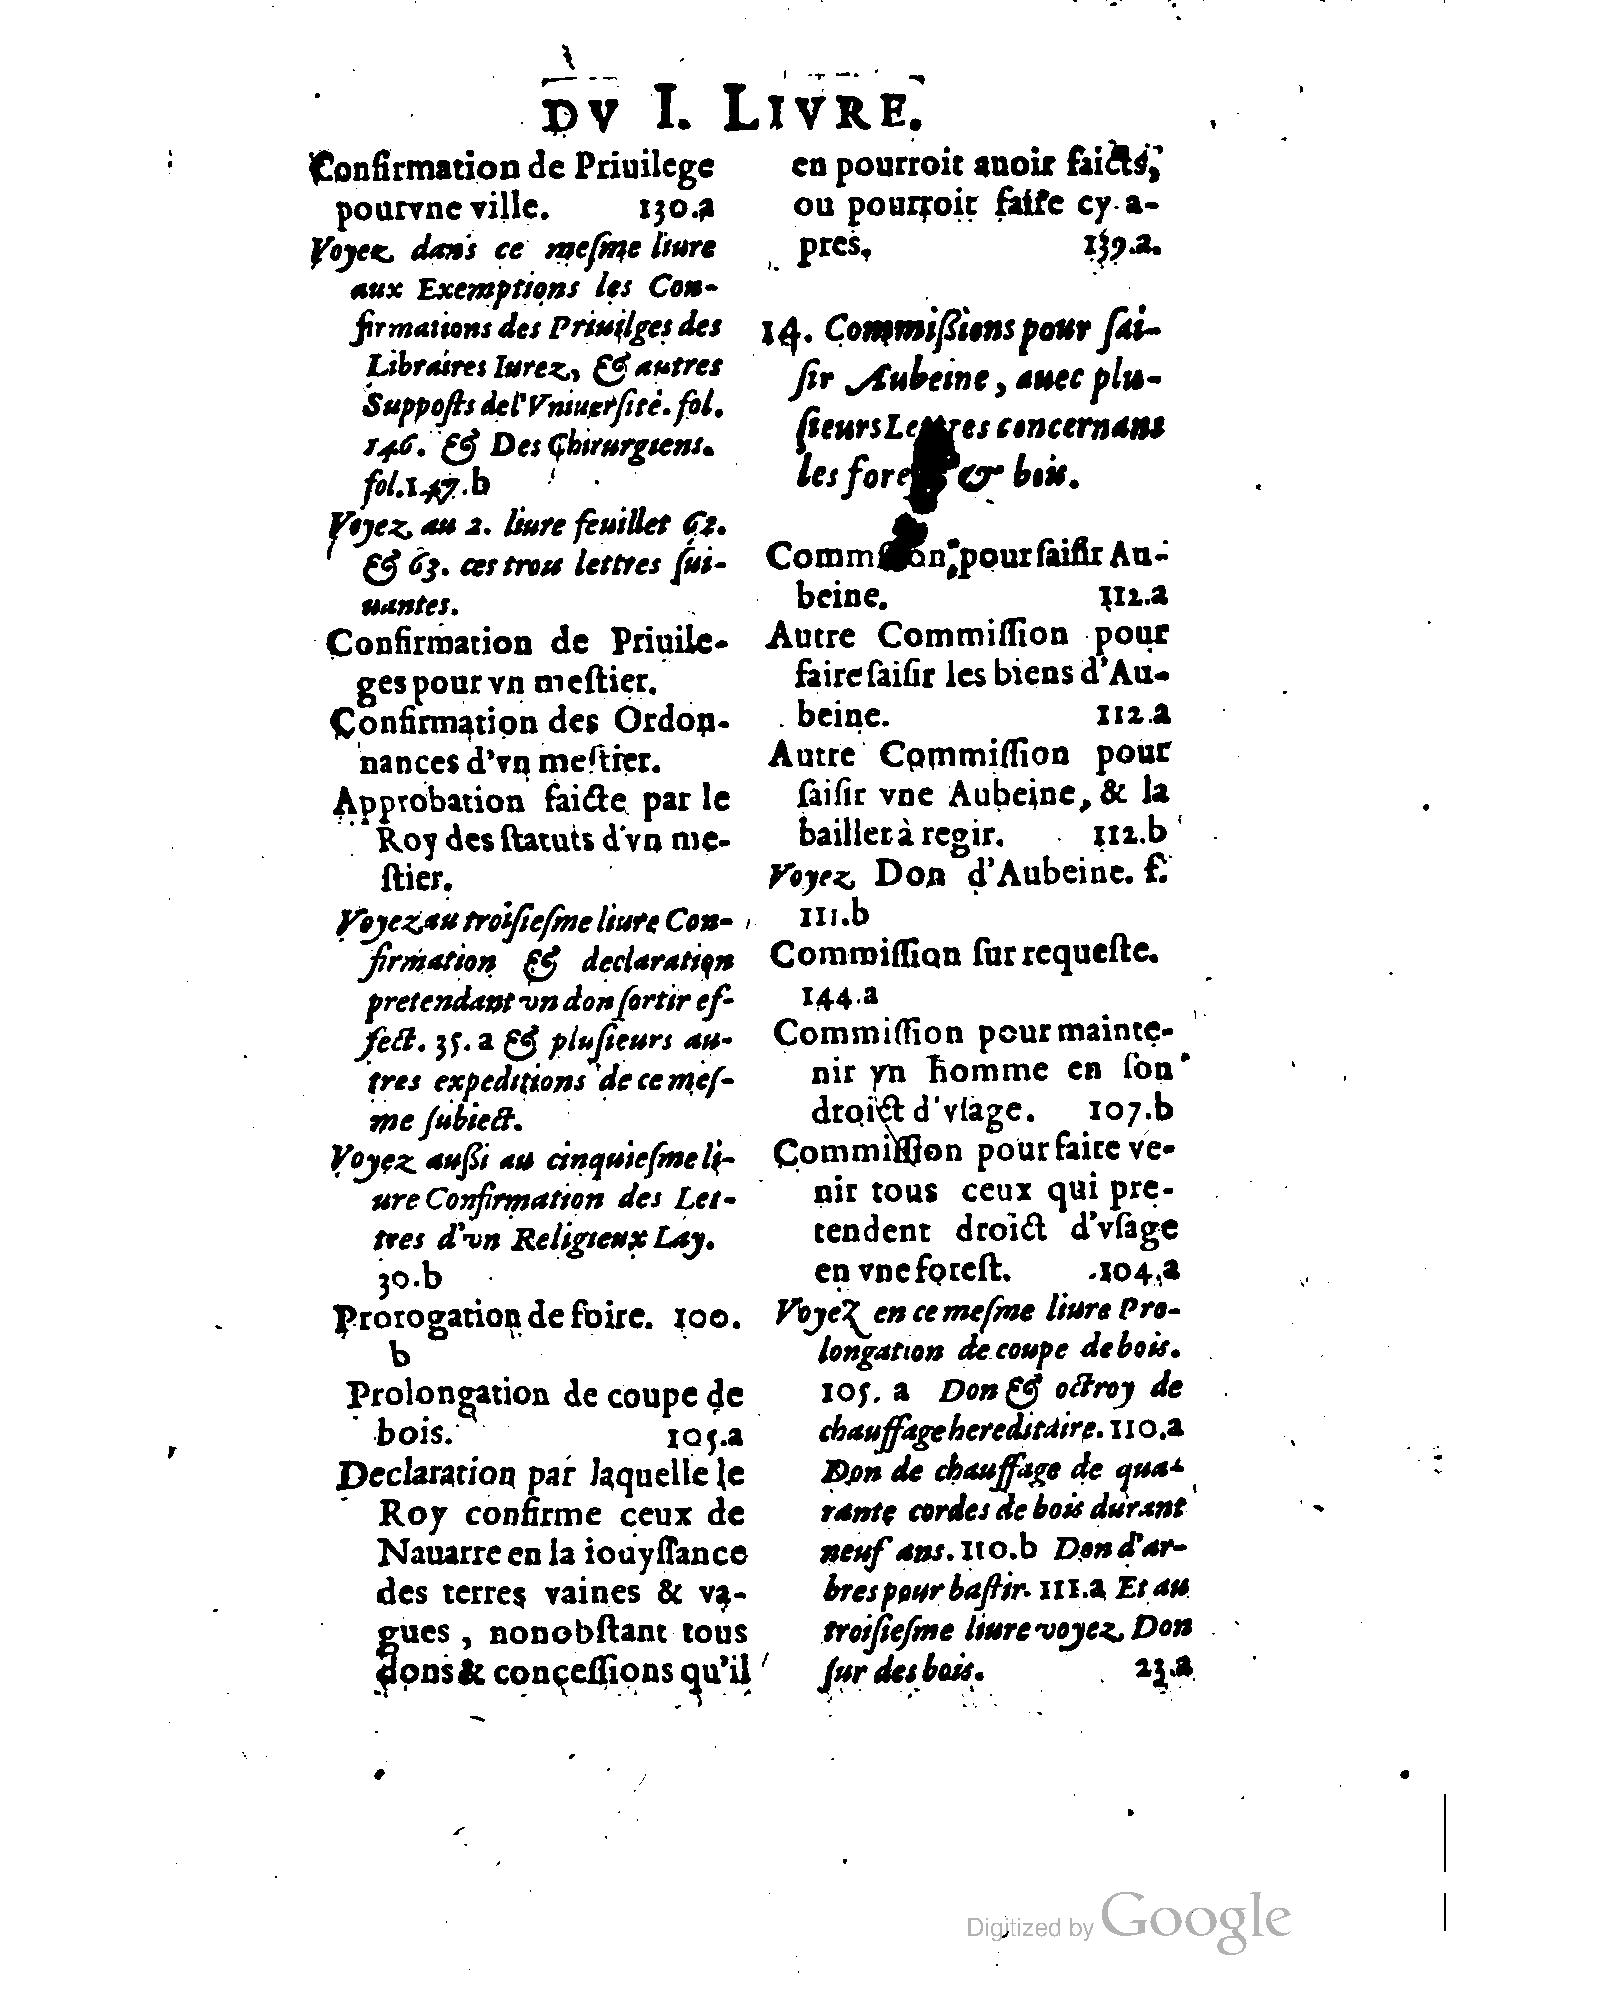 DV I. LIVRE.
Confirmation de Priuilege
pour vne ville. 130.a
Voyez dans ce mesme liure
aux Exemptions les Con-
firmations des Priuilges des
Libraires Iurez, & autres
Supposts de l'Vniuersité. fol.
146. & Des Chirurgiens.
fol.147.b
Voyez au 2. liure feuillet 62.
& 63. ces trou lettres sui-
uantes.
Confirmation de Priuile-
ges pour vn mestier.
Confirmation des Ordon-
nances d'vn mestier.
Approbation faicte par le
Roy des statuts d'vn me-
stier.
Voyez au troisiesme liure Con-
firmation & declaration
pretendant vn don sortir ef-
fect. 35. a & plusieurs au-
tres expeditions de ce mes-
me subiect.
Voyez aussi au cinquiesme li-
ure Confirmation des Let-
tres d'vn Religieux Lay.
30.b
Prorogation de foire. 100.
b
Prolongation de coupe de
bois. 105.a
Declaration par laquelle le
Roy confirme ceux de
Nauarre en la iouyssance
des terres vaines & va-
gues, nonobstant tous
dons & concessions qu'il
en pourroit auoir faicts,
ou pourroit faire cy a-
pres. 139.a.
14. Commissions pour sai-
sir Aubeine, auec plu-
sieurs Lettres concernans
les forests & bois.
Commission pour saisir Au-
beine. 112.a
Autre Commission pour
faire saisir les biens d'Au-
beine. 112.a
Autre Commission pour
saisir vne Aubeine, & la
bailler à regir. 112.b
Voyez Don d'Aubeine. f.
111.b
Commission sur requeste.
144.a
Commission pour mainte-
nir vn homme en son
droict d'vsage. 107.b
Commission pour faire ve-
nir tous ceux qui pre-
tendent droict d'vsage
en vne forest. 104.a
Voyez en ce mesme liure Pro-
longation de coupe de bois.
105. a Don & octroy de
chauffage hereditaire. 110.a
Don de chauffage de qua-
rante cordes de bois durant
neuf ans. 110.b Don d'ar-
bres pour bastir. 111.a Et au
troisiesme liure voyez Don
sur des bois. 23.a
Digitized by Google